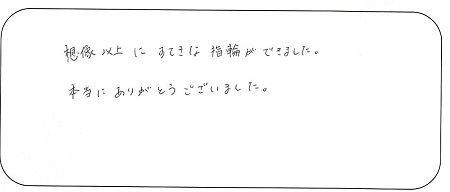 想像以上にすてきな指輪ができました。
本当にありがとうございました。